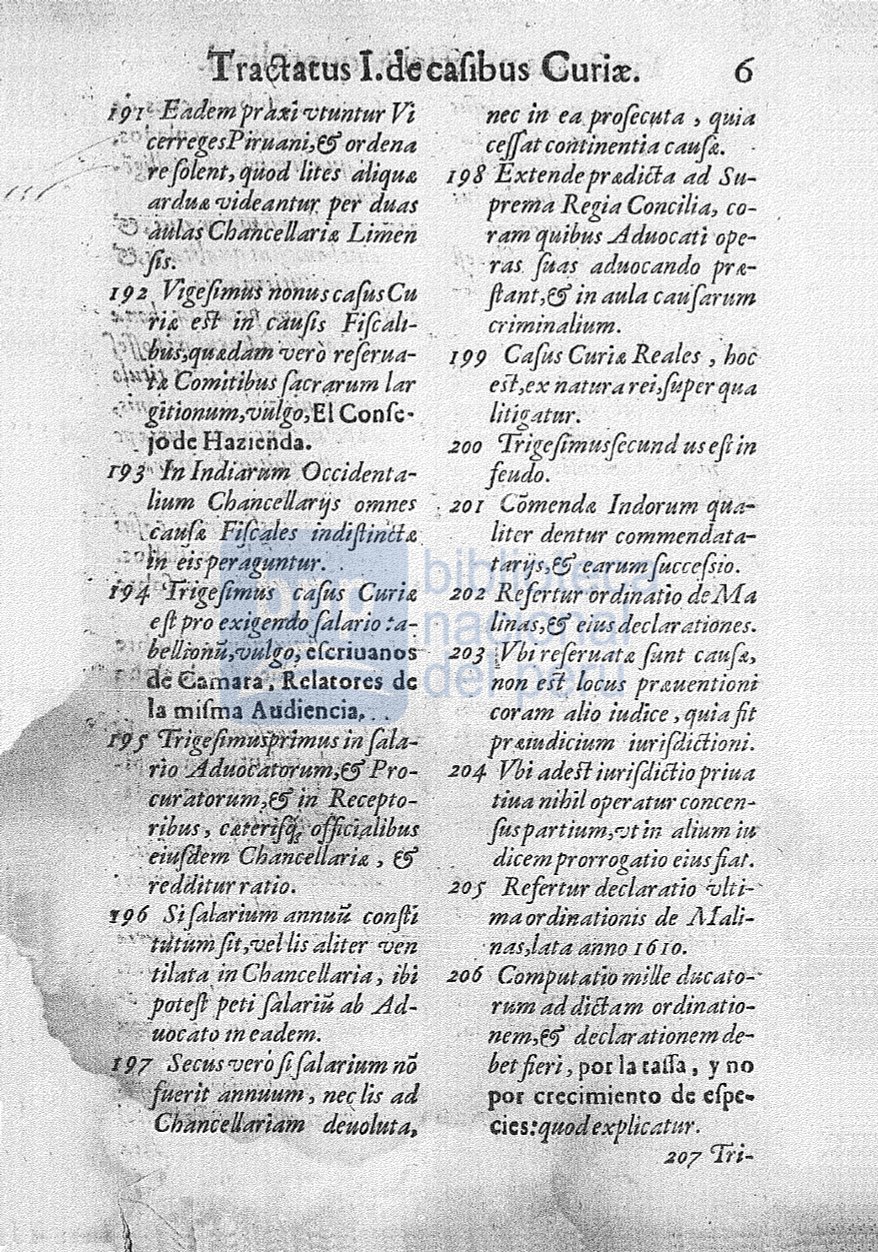 Tractatus I. de casibus Curiæ. 6
191 Eadem praxi vtuntur Vi
cerreges Piruani, & ordena
re solent, quod lites aliquæ
arduæ videantur per duas
aulas Chancellariæ Limen
sis.
192 Vigesimus nonus casus Cu
riæ est in causis Fiscali-
bus, quædam verò reserua-
tæ Comitibus sacrarum lar
gitionum, vulgo, El Conse-
jo de Hazienda.
193 In Indiarum Occidenta-
lium Chancellarijs omnes
causæ Fiscales indistinctæ
in eis peraguntur.
194 Trigesimus casus Curiæ
est pro exigendo salario ta-
bellionũ, vulgo, escriuanos
de Camara, Relatores de
la misma Audiencia,
195 Trigesimusprimus in sala-
rio Aduocatorum, & Pro-
curatorum, & in Recepto-
ribus, cæterisq; officialibus
eiusdem Chancellariæ, &
redditur ratio.
196 Si salarium annuũ consti
tutum sit, vel lis aliter ven
tilata in Chancellaria, ibi
potest peti salariũ ab Ad-
uocato in eadem.
197 Secus verò si salarium nõ
fuerit annuum, nec lis ad
Chancellariam deuoluta,
nec in ea prosecuta, quia
cessat continentia causæ.
198 Extende prædicta ad Su-
prema Regia Concilia, co-
ram quibus Aduocati ope-
ras suas aduocando præ-
stant, & in aula causarum
criminalium.
199 Casus Curiæ Reales, hoc
est, ex natura rei, super qua
litigatur.
200 Trigesimussecundus est in
feudo.
201 Cõmendæ Indorum qua-
liter dentur commendata-
tarijs, & earum successio.
202 Refertur ordinatio de Ma
linas, & eius declarationes.
203 Vbi reseruatæ sunt causæ,
non est locus præuentioni
coram alio iudice, quia fit
præiudicium iurisdictioni.
204 Vbi adest iurisdictio priua
tiua nihil operatur concen-
sus partium, vt in alium iu
dicem prorrogatio eius fiat.
205 Refertur declaratio vlti-
ma ordinationis de Mali-
nas, lata anno 1610.
206 Computatio mille ducato-
rum ad dictam ordinatio-
nem, & declarationem de-
bet fieri, por la tassa, y no
por crecimiento de espe-
cies: quod explicatur.
207 Tri-
bnp biblioteca
nacional
del perú